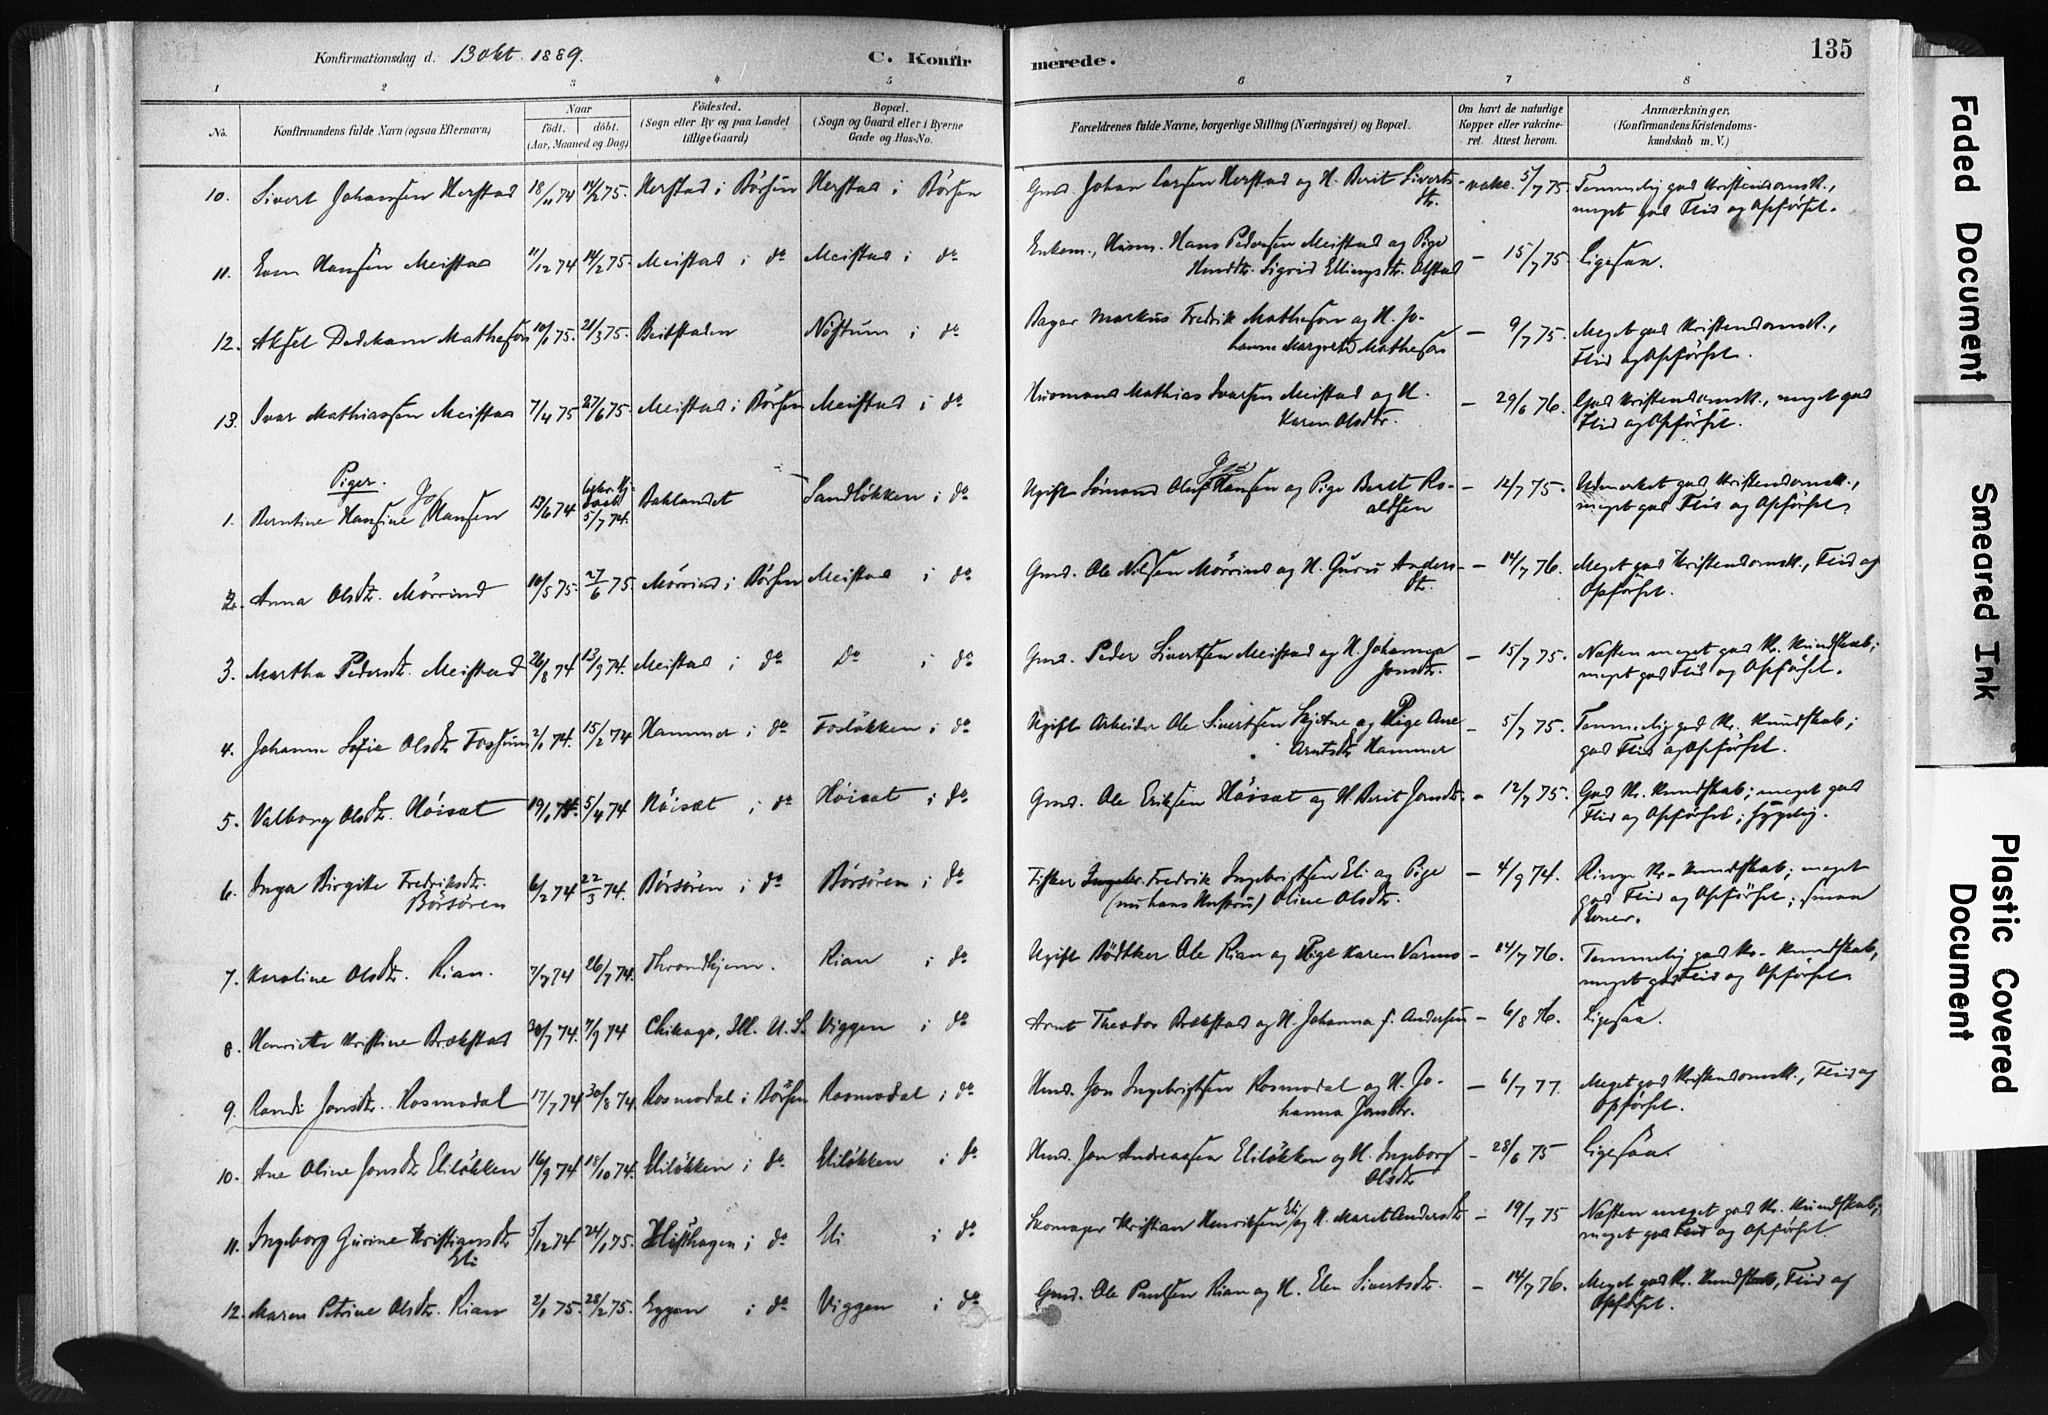 Konfirmationsdag d. 13 okt. 1889.
C. Konfir
merede.
135
1 2 3 4 5 6 7 8
No.
Konfirmandens fulde Navn (ogsaa Efternavn)
Naar
födt. döbt.
(Aar, Maaned og Dag)
Födested.
(Sogn eller By og paa Landet
tillige Gaard)
Bopæl.
(Sogn og Gaard eller i Byerne
Gade og Hus-No.
Forældrenes fulde Navne, borgerlige Stilling (Næringsvei) og Bopæl.
Om havt de naturlige
Kopper eller vakcine-
ret. Attest herom.
Anmærkninger,
(Konfirmandens Kristendoms-
kundskab m. V.)
10. Sivert Johansen Herstad 18/11 74 14/2 75. Herstad i Börsen Herstad i Börsen Gmd. Johan Larsen Herstad og H. Berit Siverts- vakc. 5/7 75 Temmelig god Kristendomsk.,
dtr. meget god Flid og Opförsel.
11. Hansen Meistad 11/12 74 14/2 75 Meistad i do Meistad i do Enkem., Husm. Hans Pedersen Meistad og Pige — 15/7 75. Ligesaa.
Sigrid Ellingsdtr. Olstad
12. Aksel Dedekam Mathesen 10/1 75. 21/3 75. Beitstaden Nöstum i do Bager Markus Fredrik Mathesen og H. Jo- — 9/7 75. Meget god Kristendomsk.,
hanne Margrete Mathesen Flid og Opförsel.
13. Ivar Mathiassen Meistad 7/4 75 27/6 75. Meistad i Börsen Meistad i do Husmand Mathias Ivarsen Meistad og H. — 29/6 76. God Kristendomsk., meget god
Karen Olsdtr. Flid og Opförsel.
Piger.
1. Berntine Hansine Hansen 13/6 74 5/7 74. Baklandet Sandlökken i do Ugift Sömand Oluf Hansen og Pige Beret Ro- — 12/7 75. Udmerket god Kristendomsk.,
aldsen meget god Flid og Opförsel.
2. Anna Olsdtr. Mörrind 10/5 75. 27/6 75. Mörrind i Börsen Meistad i do Gmd. Ole Nilsen Mörrind og H. Guru Anders- — 14/7 76. Meget god Kristendomsk., Flid og
dtr. Opförsel.
3. Martha Pedersdtr. Meistad 26/8 74 13/9 74. Meistad i do Do i do Gmd. Peder Sivertsen Meistad og H. Johanna — 15/7 75. Næsten meget god Kr. Kundskab;
Jonsdtr. meget god Flid og Opförsel.
4. Johanna Sofie Olsdtr. Fossum 2/1 74. 15/2 74 Hammer i do Foslökken i do Ugift Arbeider Ole Sivertsen Skjetne og Pige Ane — 5/7 75. Temmelig god Kr. Kundskab;
Arntsdtr. Hammer god Flid og Opförsel.
5. Valborg Olsdtr. Höisæt 19/1 74. 5/4 74 Höisæt i do Höisæt i do Gmd. Ole Eriksen Höisæt og H. Berit Jonsdtr. — 12/7 75. God Kr. Kundskab; meget god
Flid og Opförsel; sygelig.
6. Inga Birgitte Fredriksdtr. 6/2 74 22/3 74. Börsören i do Börsören i do Fisker Fredrik Ingebrigtsen Eli og Pige — 4/9 74. Ringe Kr. Kundskab; meget
Börsören (nu hans Hustru) Oline Olsdtr. god Flid og Opförsel; smaa
Evner.
7. Karoline Olsdtr. Rian. 7/7 74 26/7 74. Throndhjem. Rian i do Ugift Bödtker Ole Rian og Pige Karen Varmo — 14/7 76. Temmelig god Kr. Kundskab,
meget god Flid og Opförsel.
8. Henriette Kristine Brækstad 30/7 74. 7/9 74 Chikago, Ill. U. S. Viggen i do Arnt Theodor Brækstad og H. Johanna f. Andersen — 6/8 76. Ligesaa.
9. Randi Jonsdtr. Rosmodal 17/7 74 30/8 74. Rosmodal i Börsen Rosmodal i do Hmd. Jon Ingebrigtsen Rosmodal og H. Jo- — 6/7 77. Meget god Kristendomsk., Flid og
hanna Jonsdtr. Opförsel.
10. Ane Oline Jonsdtr. Elilökken 16/9 74. 18/10 74. Elilökken i do Elilökken i do Hmd. Jon Andreassen Elilökken og H. Ingeborg — 28/6 75 Ligesaa.
Olsdtr
11. Ingeborg Gurine Kristiansdtr. 5/12 74 24/1 75. i do Eli i do Skomager Kristian Henriksen Eli og H. Marit Andersdtr — 19/7 75 Næsten meget god Kr. Kundskab;
Eli meget god Flid og Opförsel.
12. Maren Petrine Olsdtr. Rian 2/1 75. 28/2 75. Eggen i do Viggen i do Gmd. Ole Paulsen Rian og H. Elen Sivertsdtr. — 14/7 76. Meget god Kr. Kundskab, Flid og
Opförsel.
Faded Document
Smeared Ink
Plastic Covered
Document